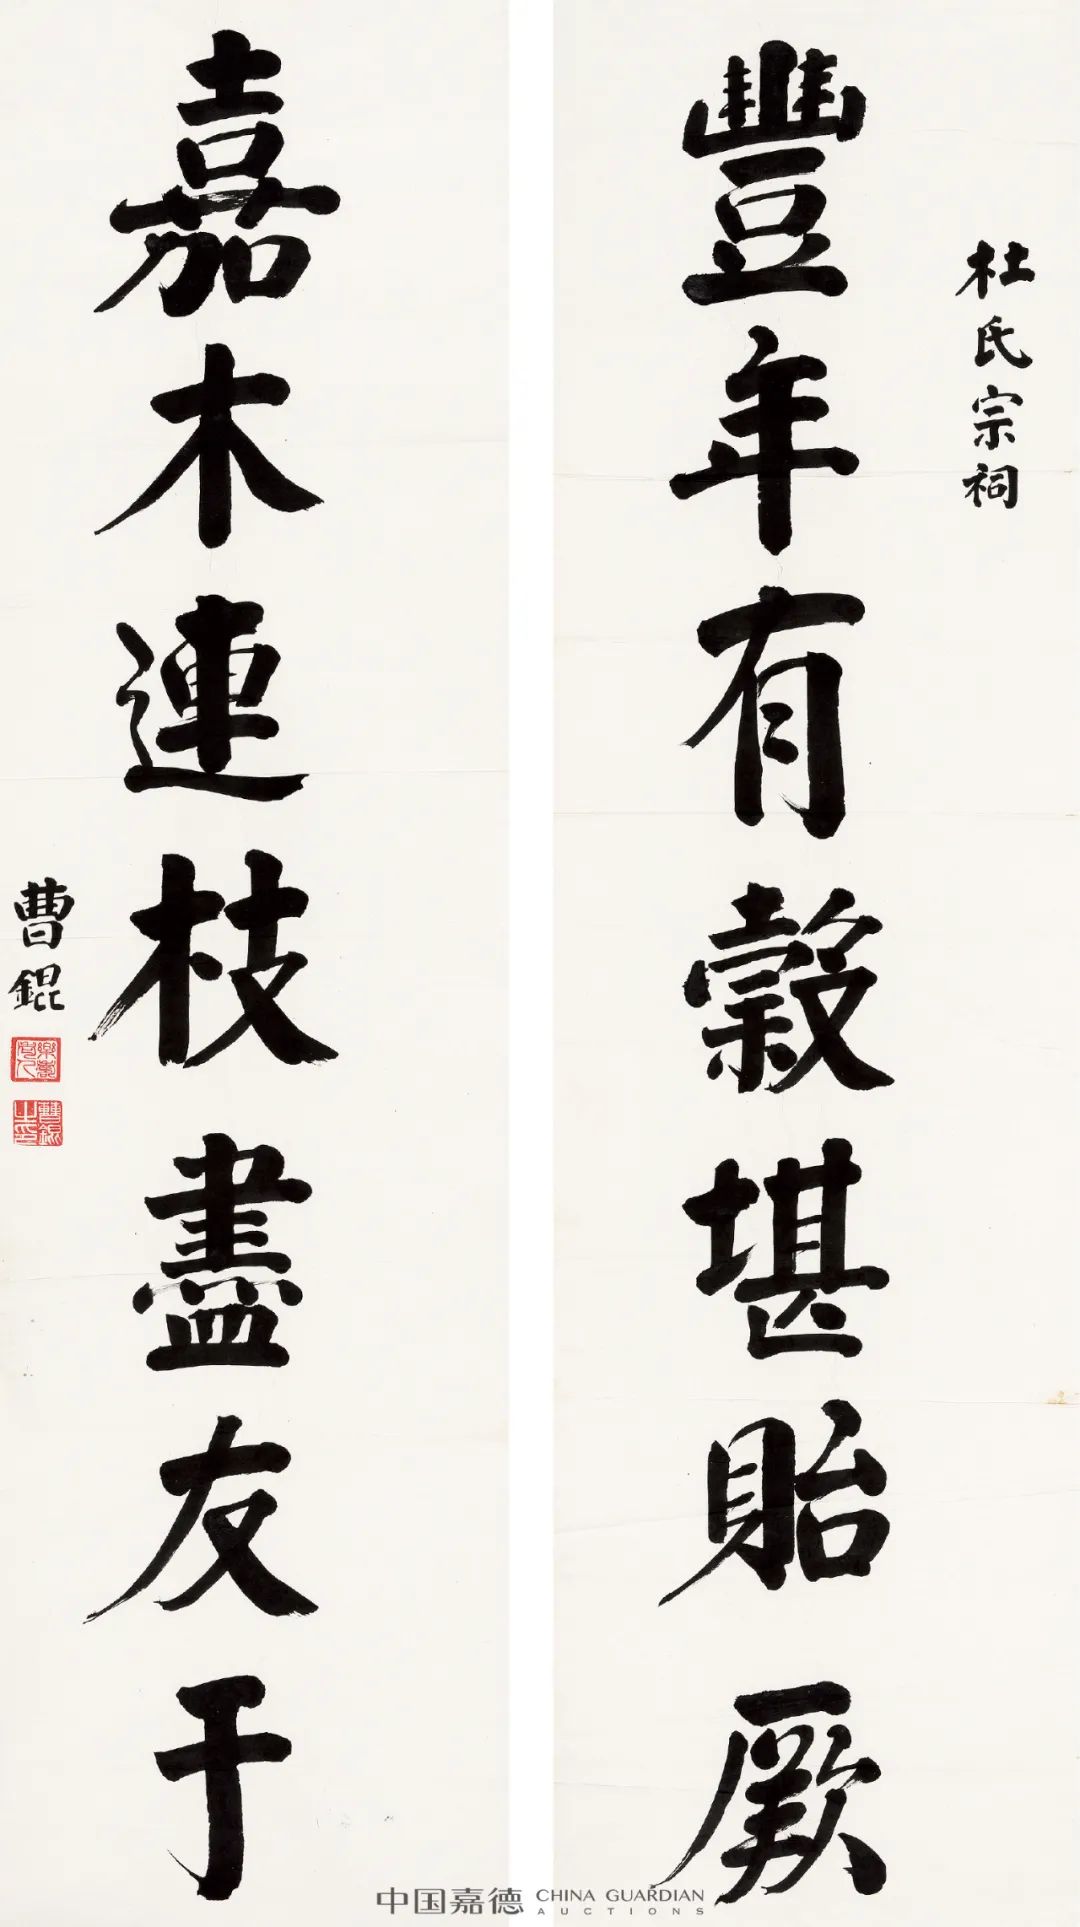 杜氏宗祠
豐年有穀堪貽厥
嘉木連枝盡友于
曹錕
樂壽老人
曹錕之印
中国嘉德 CHINA GUARDIAN AUCTIONS